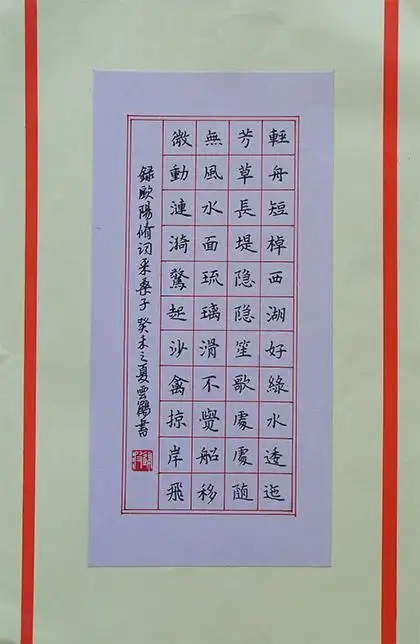 輕舟短棹西湖好綠水逶迤
芳草長堤隐隐笙歌處處随
無風水面琉璃滑不覺船移
微動漣漪驚起沙禽掠岸飛
録歐陽脩词采桑子癸未之夏雲鶴書